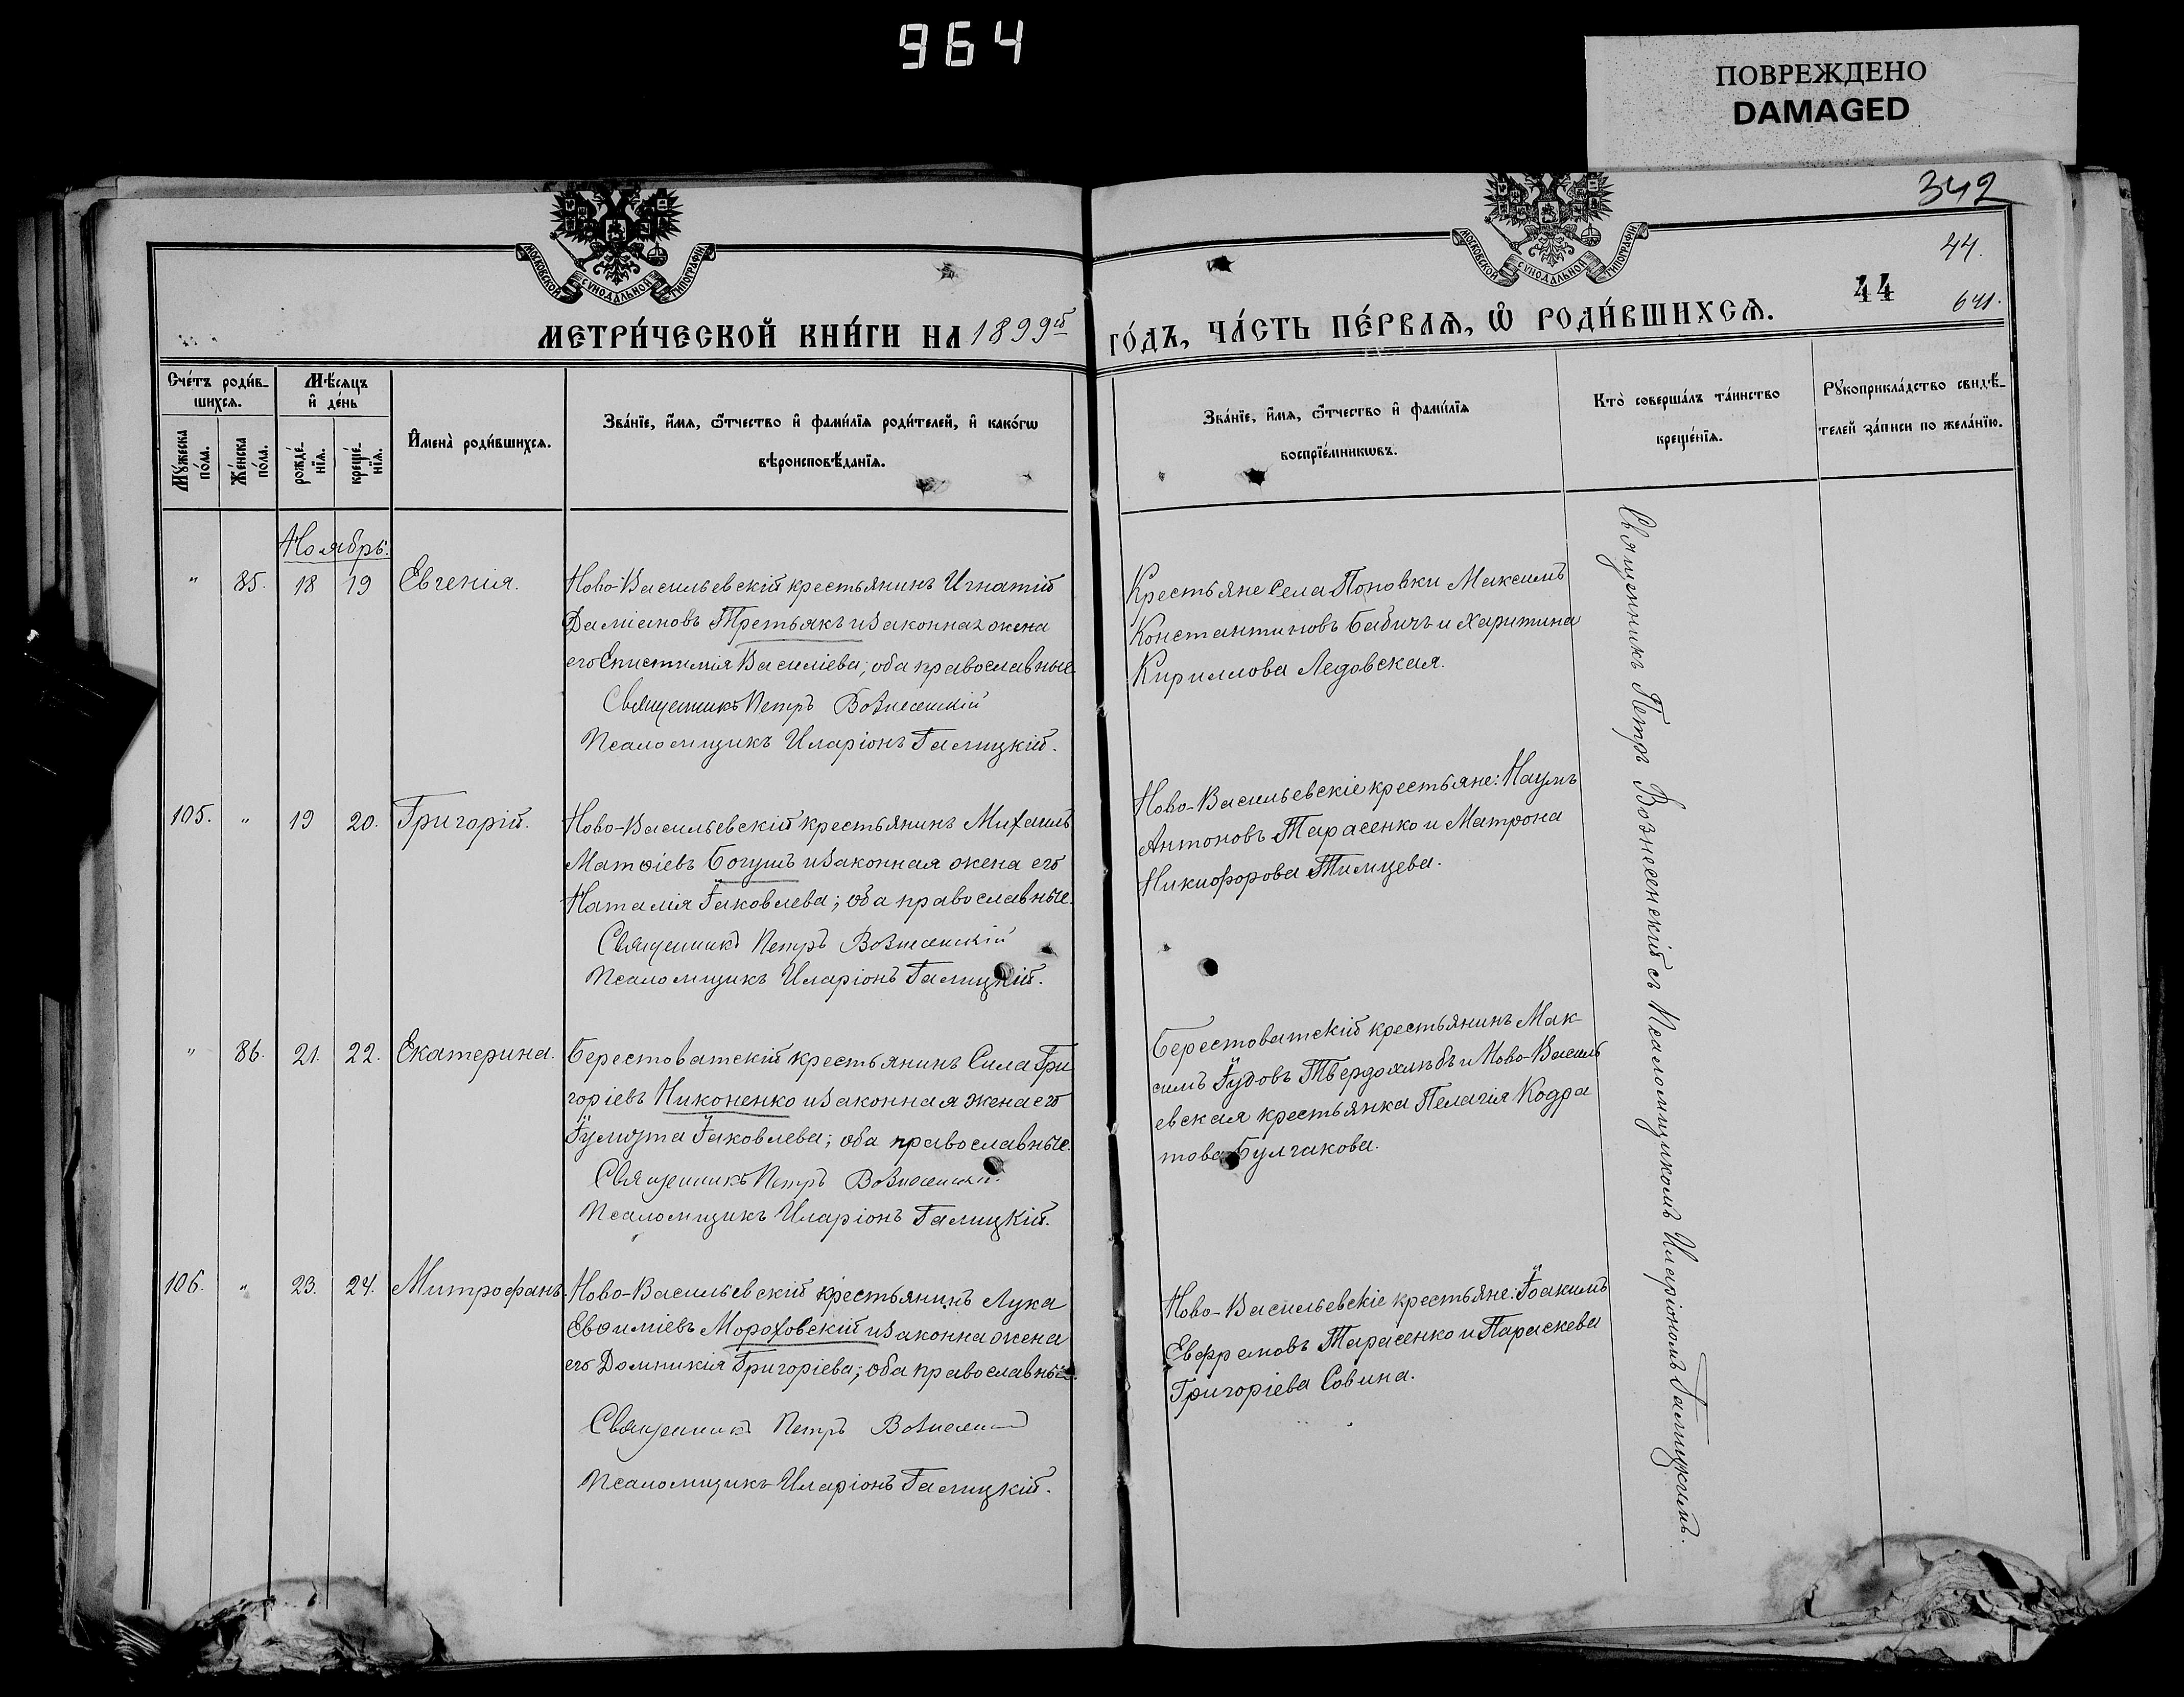 964
ПОВРЕЖДЕНО
DAMAGED
342
44.
44
641.
МОСКОВСКОЙ СѴНОДАЛЬНОЙ ТИПОГРАФІИ
МОСКОВСКОЙ СѴНОДАЛЬНОЙ ТИПОГРАФІИ
МЕТРИ́ЧЕСКОЙ КНИ́ГИ НА 1899ый
ГО́ДЪ, ЧА́СТЬ ПЕ́РВАѦ, Ѽ РОДИ́ВШИХСѦ.
Сче́тъ роди́в-
шихсѧ.
Мꙋ́жеска
по́ла.
Же́нска
по́ла.
Мѣ́сяцъ
и҆ де́нь
рожде́-
нїѧ.
креще́-
нїѧ.
И҆мена̀ роди́вшихсѧ.
Зва́нїе, и҆́мѧ, ѻ҆́тчество и҆ фами́лїѧ роди́телей, и҆ како́гѡ
вѣроисповѣ́данїѧ.
Зва́нїе, и҆́мѧ, ѻ҆́тчество и҆ фами́лїѧ
воспрїе́мникѡвъ.
Кто̀ соверша́лъ та́инство
креще́нїѧ.
Рꙋкоприкла́дство свидѣ́-
телей за́писи по жела́нїю.
Ноябрь.
" 85. 18 19 Евгенія.
Ново-Васильевскій крестьянинъ Игнатій
Даміановъ Третьякъ и законная жена
его Епистимія Василіева; оба православные.
Священникъ Петръ Вознесенскій
Псаломщикъ Иларіонъ Галицкій.
Крестьяне села Поповки Максимъ
Константиновъ Бабичъ и Харитина
Кириллова Ледовская.
Священникъ Петръ Вознесенскій съ Псаломщикомъ Иларіономъ Галицкимъ.
105. " 19 20. Григорій.
Ново-Васильевскій крестьянинъ Михаилъ
Матѳіевъ Богушъ и законная жена его
Наталія Іаковлева; оба православные.
Священникъ Петръ Вознесенскій
Псаломщикъ Иларіонъ Галицкій.
Ново-Васильевскіе крестьяне: Наумъ
Антоновъ Тарасенко и Матрона
Никифорова Тимцева.
" 86. 21. 22. Екатерина.
Берестоватскій крестьянинъ Сила Гри
горіевъ Никоненко и законная жена его
Іулитта Іаковлева; оба православные.
Священникъ Петръ Вознесенскій.
Псаломщикъ Иларіонъ Галицкій.
Берестоватскій крестьянинъ Мак-
симъ Іудовъ Твердохлѣбъ и Ново-Василь
евская крестьянка Пелагія Кодра
това Булгакова.
106. " 23. 24. Митрофанъ.
Ново-Васильевскій крестьянинъ Лука
Евѳиміевъ Мороховскій и законна жена
его Домникія Григоріева; оба православные.
Священникъ Петръ Вознесенскій
Псаломщикъ Иларіонъ Галицкій.
Ново-Васильевскіе крестьяне: Іоакимъ
Евфремовъ Тарасенко и Параскева
Григоріева Совина.